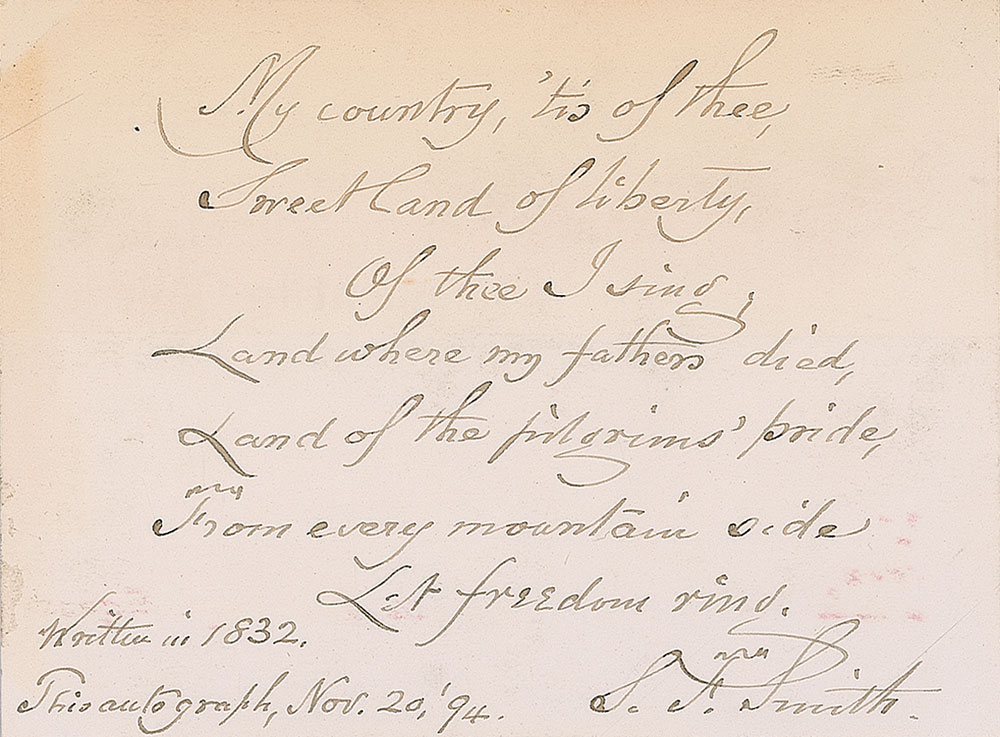 My country, 'tis of thee,
Sweet land of liberty,
Of thee I sing;
Land where my fathers died,
Land of the pilgrims' pride,
From every mountain side
Let freedom ring.
Written in 1832.
This autograph, Nov. 20, '94.
S. F. Smith.